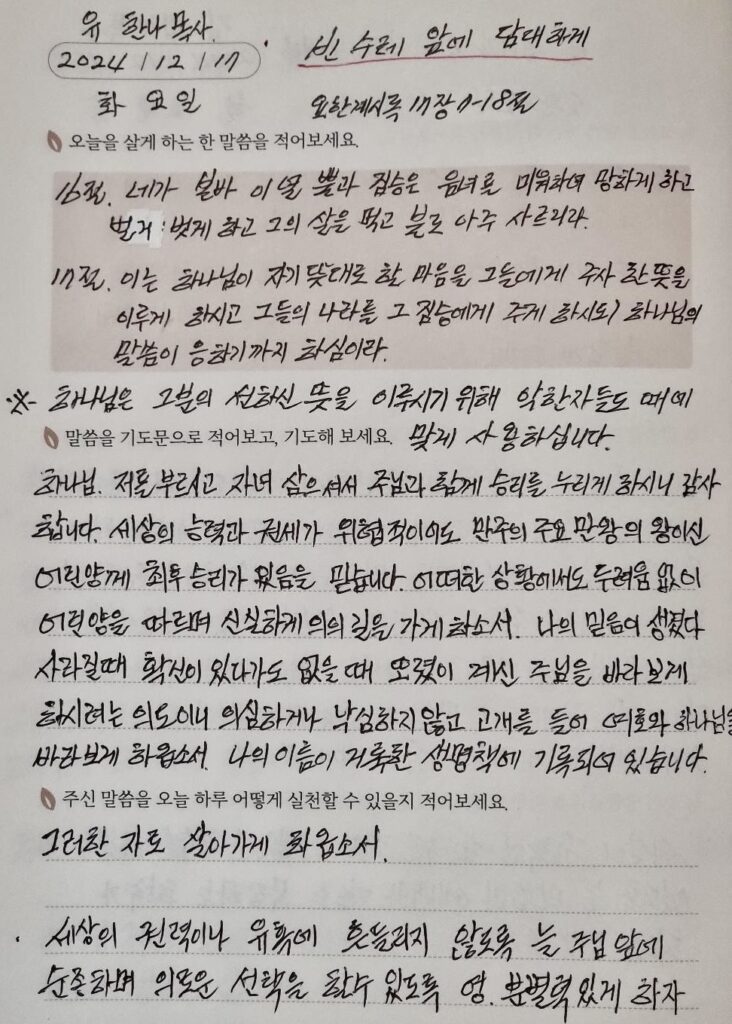 유 한나 목사.
2024 / 12 / 17
· 빈 수레 앞에 담대하게
화 요일
요한계시록 17장 7-18절
오늘을 살게 하는 한 말씀을 적어보세요.
16절. 네가 본바 이 열 뿔과 짐승은 음녀를 미워하여 망하게 하고
벌거벗게 하고 그의 살을 먹고 불로 아주 사르리라.
17절. 이는 하나님이 자기 뜻대로 할 마음을 그들에게 주사 한 뜻을
이루게 하시고 그들의 나라를 그 짐승에게 주게 하시되 하나님의
말씀이 응하기까지 하심이라.
※ 하나님은 그분의 선하신 뜻을 이루시기 위해 악한자들도 때에
말씀을 기도문으로 적어보고, 기도해 보세요. 맞게 사용하십니다.
하나님. 저를 부르시고 자녀 삼으셔서 주님과 함께 승리를 누리게 하시니 감사
합니다. 세상의 능력과 권세가 위협적이어도 만주의 주요 만왕의 왕이신
어린양께 최후 승리가 있음을 믿습니다. 어떠한 상황에서도 두려움 없이
어린양을 따르며 신실하게 의의 길을 가게 하소서. 나의 믿음이 생겼다
사라질때 확신이 있다가도 없을 때 오롯이 계신 주님을 바라보게
하시려는 의도이니 의심하거나 낙심하지 않고 고개를 들어 여호와 하나님을
바라보게 하옵소서. 나의 이름이 거룩한 생명책에 기록되어 있습니다.
주신 말씀을 오늘 하루 어떻게 실천할 수 있을지 적어보세요.
그러한 자로 살아가게 하옵소서.
· 세상의 권력이나 유혹에 흔들리지 않도록 늘 주님 앞에
순종하며 의로운 선택을 할수 있도록 영. 분별력있게 하자